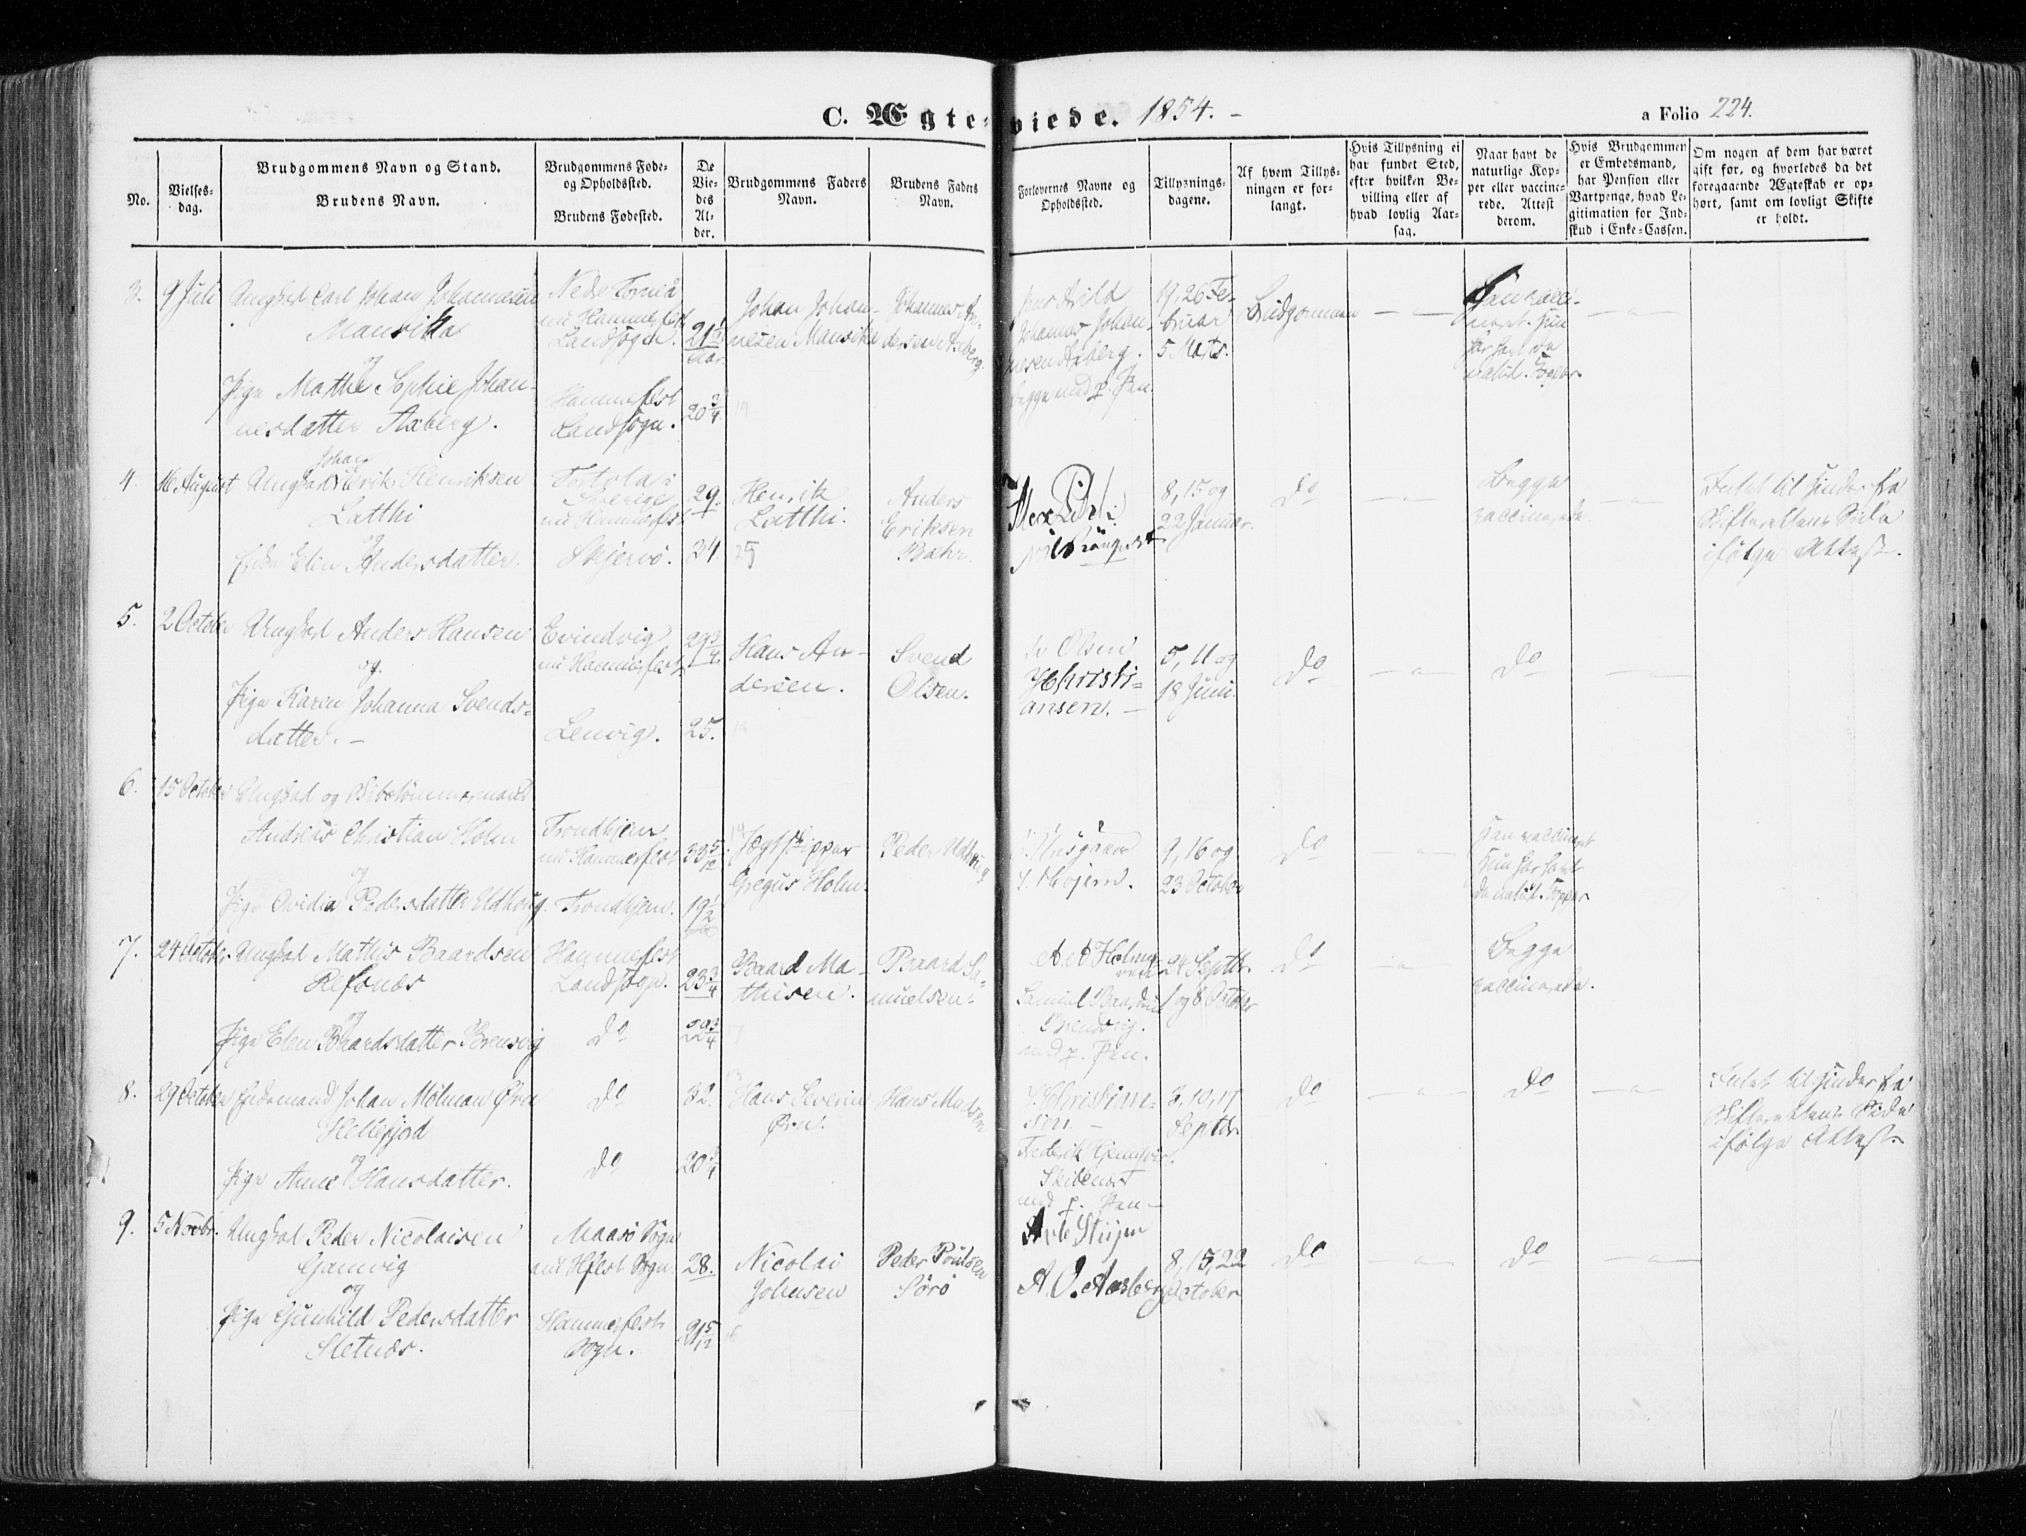 C. Ægte-viede. 1854. -
a Folio 224.
No.
Vielses-
dag.
Brudgommens Navn og Stand.
Brudens Navn.
Brudgommens Føde-
og Opholdssted.
Brudens Fødested.
De
Vie-
des
Al-
der.
Brudgommens Faders
Navn.
Brudens Faders
Navn.
Forlovernes Navne og
Opholdssted.
Tillysnings-
dagene.
Af hvem Tillys-
ningen er for-
langt.
Hvis Tillysning ei
har fundet Sted,
efter hvilken Be-
villing eller af
hvad lovlig Aar-
sag.
Naar havt de
naturlige Kop-
per eller vaccine-
rede. Attest
derom.
Hvis Brudgommen
er Embedsmand,
har Pension eller
Vartpenge, hvad Le-
gitimation for Ind-
skud i Enke-Cassen.
Om nogen af dem har været
gift før, og hvorledes da det
foregaaende Ægteskab er op-
hørt, samt om lovligt Skifte
er holdt.
3.
9 Juli
Ungkarl Carl Johan Johannesen
Mansikka
og
Pige Mathe Sophie Johan-
nesdatter Axberg.
Neder Torneå
nu Hammerfest
Landsogn.
Hammerfest
Landsogn.
21 1/2
Aar
20 3/4
19
Johan Johan-
nesen Mansikka
Johannes An-
dersen Axberg.
Arild
Johannes Johan-
nesen Axberg.
begge med p. Pen.
19, 26 Fe-
bruar
5 Marts.
Brudgommen
Han vacci-
neret. Hun
har havt de
naturl. Kopper.
4.
16 August
Ungkarl Johan Erik Henriksen
Latthi
og
Enke Elen Andersdatter.
Tortola i
Sverige
nu Hammerfest
Skjervö.
29.
34.
25
Henrik
Latthi.
Anders
Eriksen
Bæhr.
8, 15 og
22 Januar.
Do
Begge
vaccinerede.
Intet til Hinder fra
Skifterettens Side
ifølge Attest.
5.
2 October
Ungkarl Anders Hansen
og
Pige Karen Johanna Svends-
datter. -
Evindvig
nu Hammerfest
Lenvig.
29 3/4
25.
Hans An-
dersen.
Svend
Olsen.
Olsen
Christi-
ansen. -
5, 11 og
18 Juni.
Do
Do
6.
15 October
Ungkarl og Skibstömmermand
Andreas Christian Holm
og
Pige Ovidia Pedersdatter Uldhoug.
Trondhjem
nu Hammerfest
Trondhjem.
33 5/12
19 1/2
Jægtskipper
Gregus Holm.
Peder Uldhoug
Husgaard
Højem.
9, 16 og
23 October
Do
Han vaccineret
Hun har havt
de naturl. Kopper
7.
24 October
Ungkarl Mathis Baardsen
Refsnæs
og
Pige Elen Baardsdatter Brensvig
Hammerfest
Landsogn.
Do
23 3/4
22 3/4
17
Baard Ma-
thisen.
Baard Sa-
muelsen.
Samuel Baardsen
Brensvig.
med p. Pen.
24 Septbr.
1 og 8 October
Do
Begge
vaccinerede.
8.
29 October
Enkemand Johan Mölman Ørn
Hellefjord
og
Pige Anne Hansdatter.
Do
Do
32.
20 3/4
Hans Severin
Ørn.
Hans Madsen
Christian-
sen. -
Frederik
med p. Pen -
3, 10, 17
Septbr.
Do
Do
Intet til Hinder fra
Skifterettens Side
ifølge Attest
9.
5 Novbr.
Ungkarl Peder Nicolaisen
Gamvig
og
Pige Gunhild Pedersdatter
Sletnæs.
Maasö Sogn
nu Hfest Sogn.
Hammerfest
Sogn.
28.
21 5/12
Nicolai
Johnsen
Peder Poulsen
Sørø
A. O. Aasberg
8, 15, 22
October
Do
Do